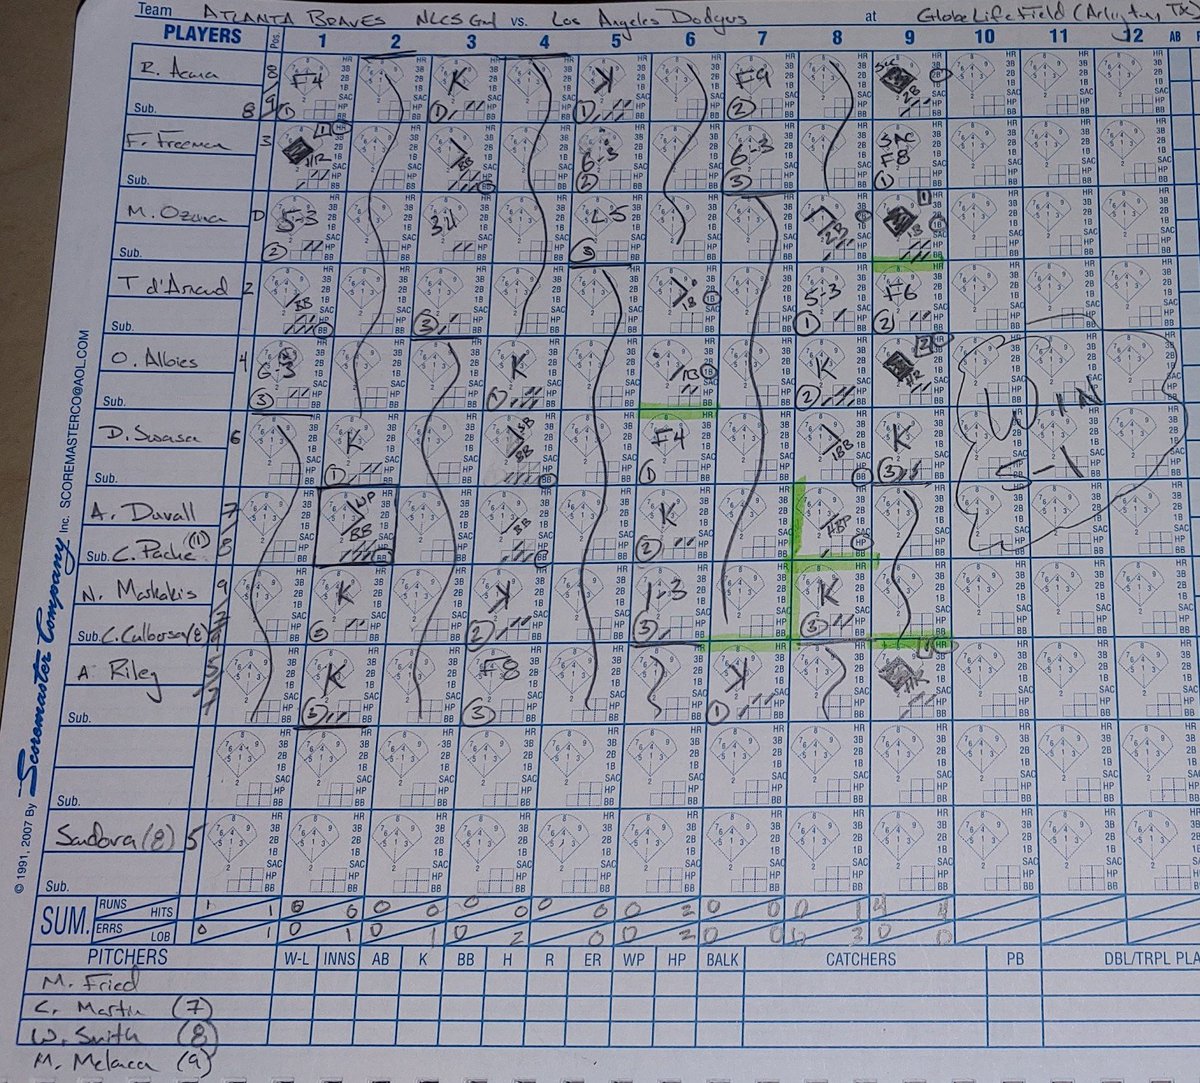 Team ATLANTA BRAVES NLCS Gm1 vs. Los Angeles Dodgers at Globe Life Field (Arlington, TX)
PLAYERS Pos. 1 2 3 4 5 6 7 8 9 10 11 12 AB R
R. Acuna 8 F4 K K F9
Sub. 8/9
F. Freeman 3 HR BB 6-3 6-3 SAC F8
Sub.
M. Ozuna D 5-3 3U L5 2B 1B
Sub.
T d'Arnaud 2 BB 1B 5-3 F6
Sub.
O. Albies 4 6-3 K 1B K HR
Sub.
D. Swasa 6 K BB F4 BB K
Sub.
A. Duvall 7 BB BB K HBP
Sub. C. Pache (11) 8
N. Markakis 9 K K 1-3 K
Sub. C. Culberson (8)
A. Riley 5 K F8 K HR
Sub.
Sub.
Sandova (8) 5
Sub.
WIN
5-1
SUM. RUNS HITS 1 1 0 0 0 0 0 0 0 0 0 2 0 0 0 1 4 4
ERRS LOB 0 1 0 1 0 1 0 2 0 0 2 0 0 0 3 0 0
PITCHERS W-L INNS AB K BB H R ER WP HP BALK CATCHERS PB DBL/TRPL PLA
M. Fried
C. Martin (7)
W. Smith (8)
M. Melacca (9)
© 1991, 2007 By Scoremaster Company Inc. SCOREMASTERCO@AOL.COM